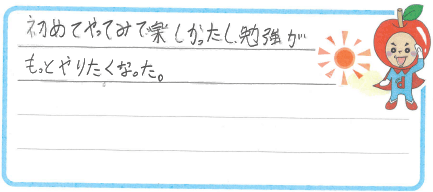 初めてやってみて楽しかったし、勉強が
もっとやりたくなった。